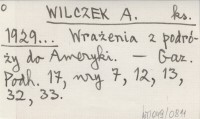 WILCZEK A. ks.
1929... Wrażenia z podró-
ży do Ameryki. — Gaz.
Podh. 17, nry 7, 12, 13,
32, 33.